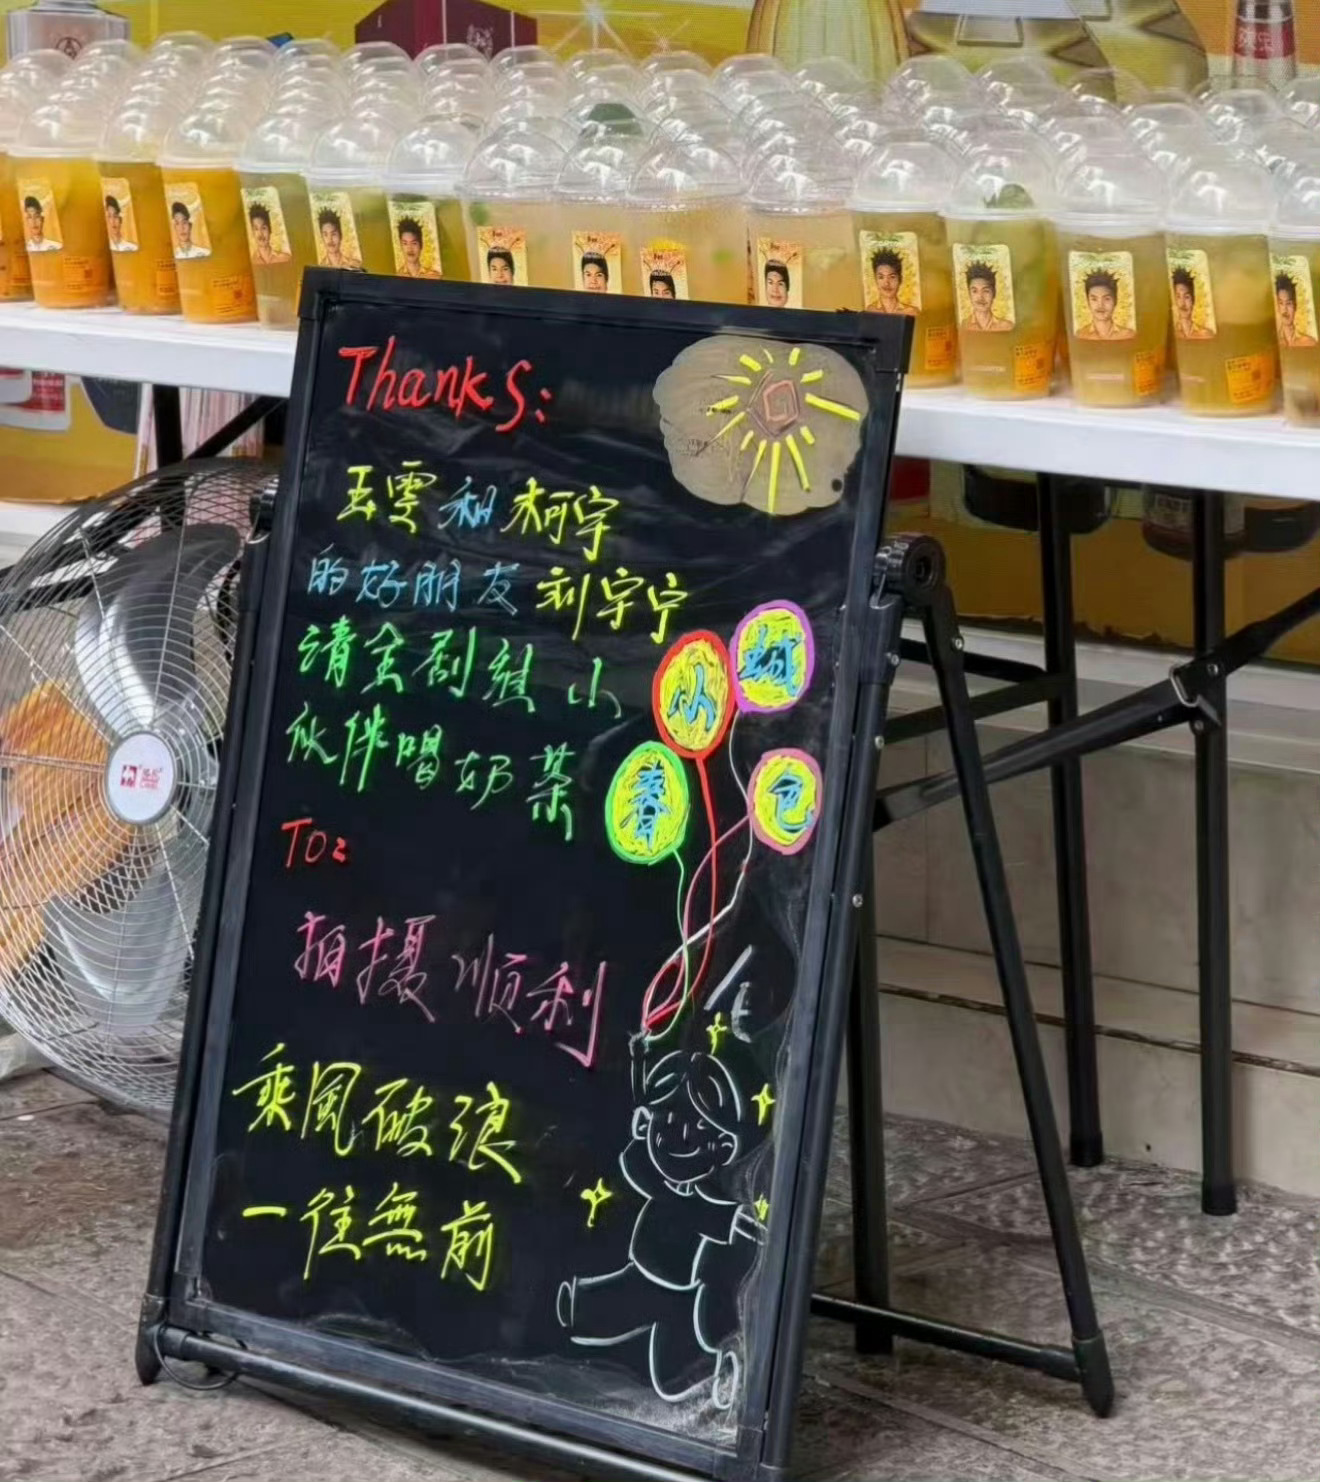 Thanks:
玉雯和柯宇
的好朋友刘宇宁
请全剧组小
伙伴喝奶茶
To:
拍摄顺利
乘風破浪
一往無前
小城
春色